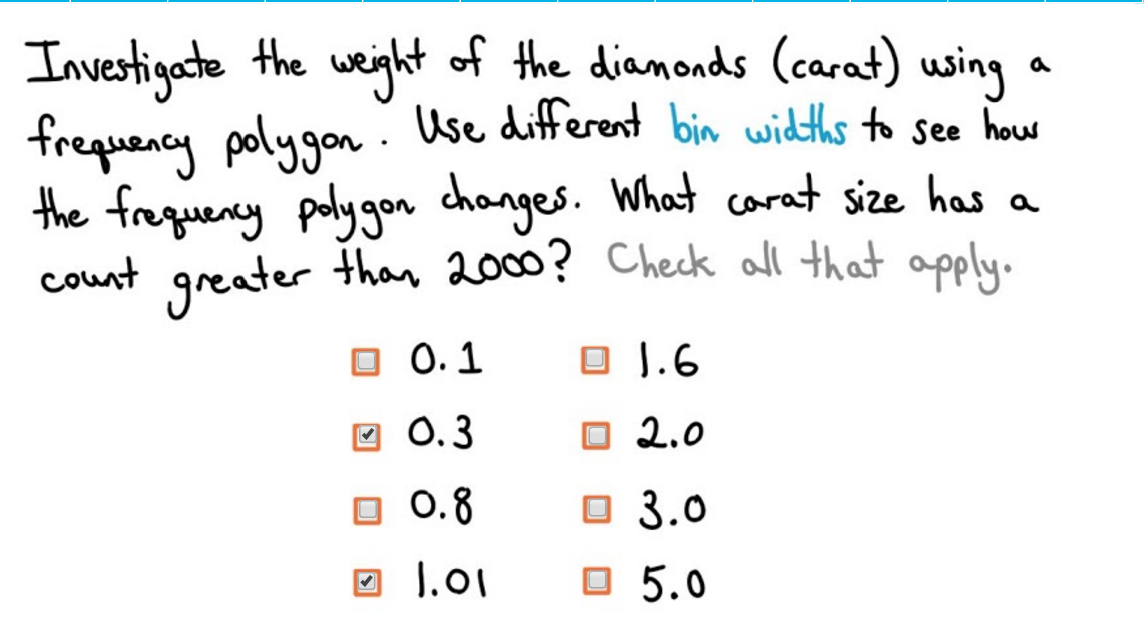 Investigate the weight of the diamonds (carat) using a
frequency polygon. Use different bin widths to see how
the frequency polygon changes. What carat size has a
count greater than 2000? Check all that apply.
0.1 1.6
0.3 2.0
0.8 3.0
1.01 5.0